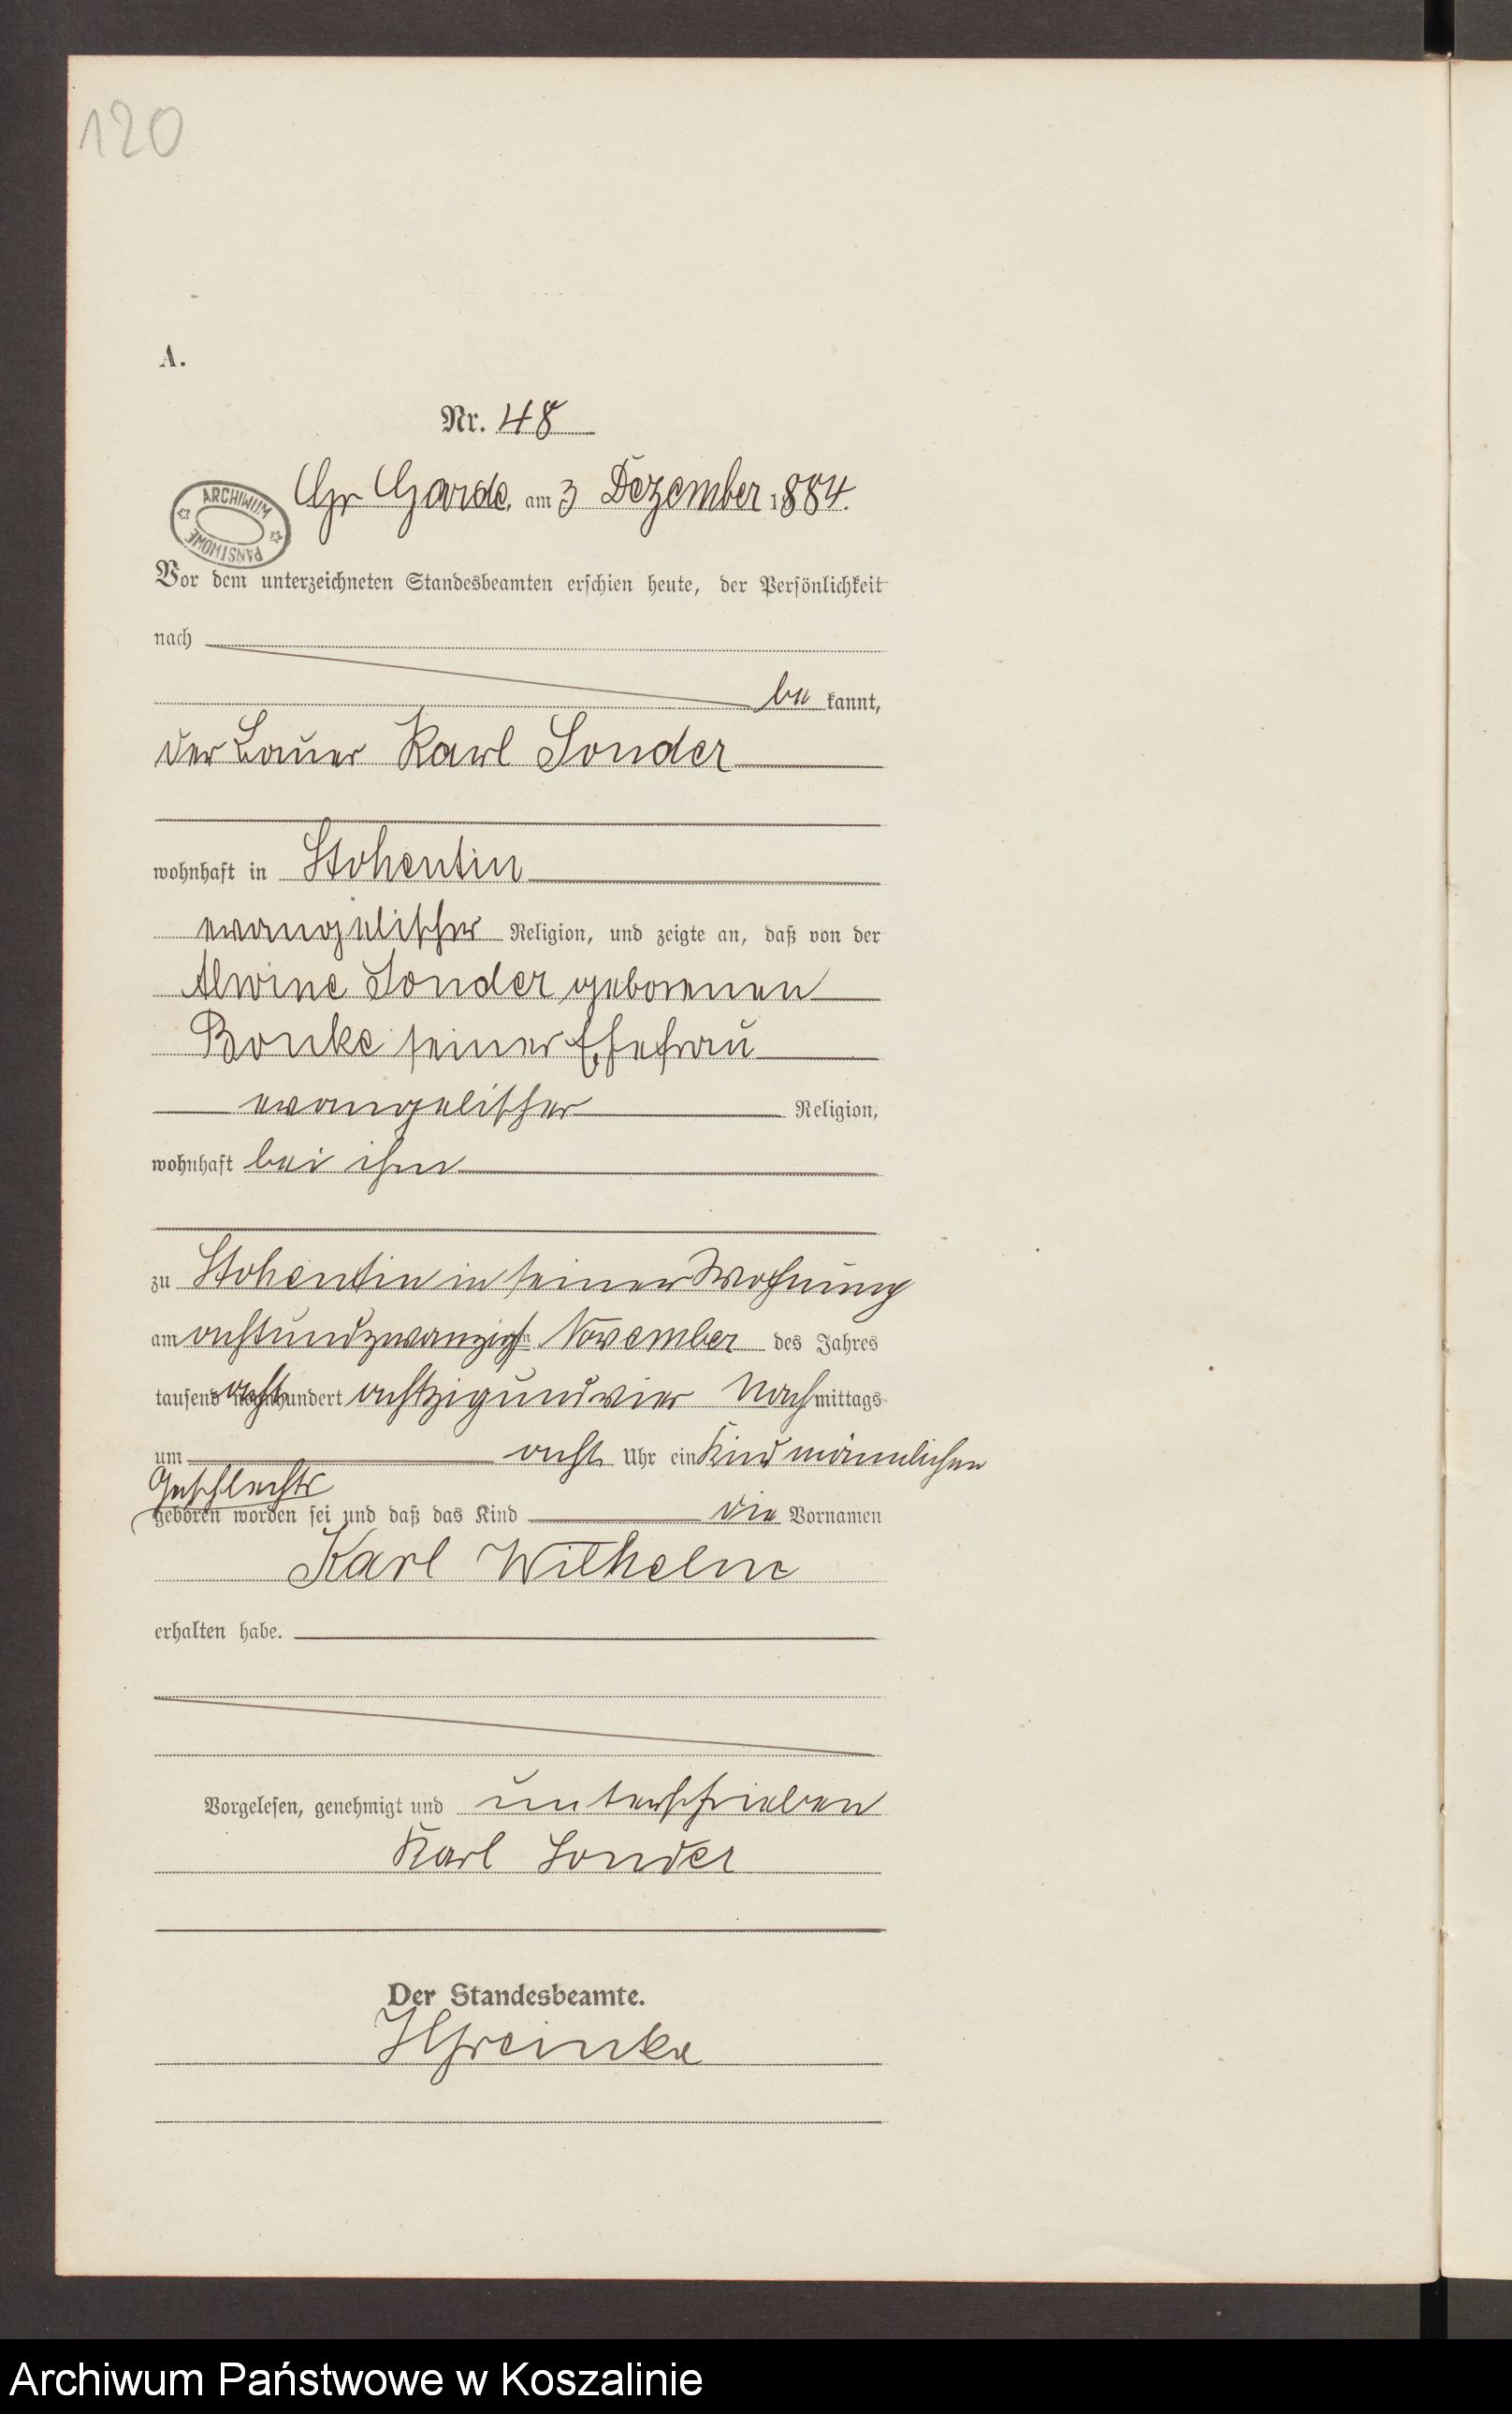 120
A.
Nr. 48
ARCHIWUM PAŃSTWOWE
Gr Garde, am 3 Dezember 1884.
Vor dem unterzeichneten Standesbeamten erschien heute, der Persönlichkeit
nach
be kannt,
der Bauer Karl Sonder
wohnhaft in Stohentin
evangelischer Religion, und zeigte an, daß von der
Alwine Sonder geborenen
Bonke seiner Ehefrau
evangelischer Religion,
wohnhaft bei ihm
zu Stohentin in seiner Wohnung
am achtundzwanzigsten November des Jahres
tausend acht hundert achtzigundvier Nachmittags
um acht Uhr ein Kind männlichen
Geschlechts
geboren worden sei und daß das Kind die Vornamen
Karl Wilhelm
erhalten habe.
Vorgelesen, genehmigt und unterschrieben
Karl Sonder
Der Standesbeamte.
Archiwum Państwowe w Koszalinie